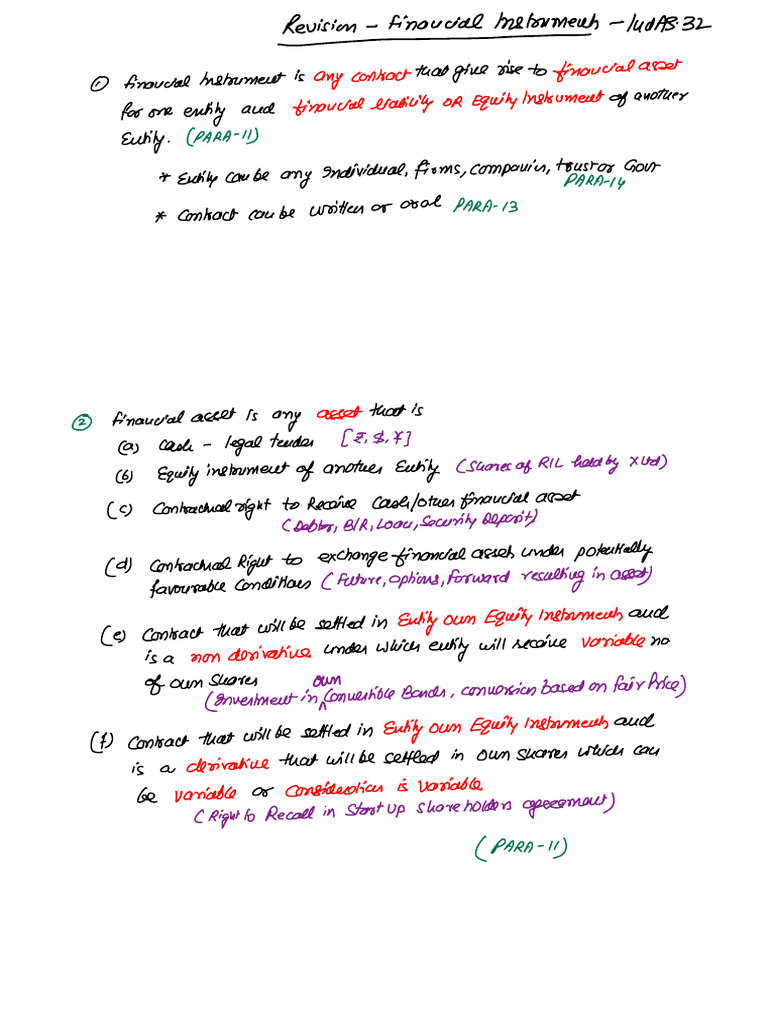 Revision - Financial Instruments - IndAS-32
① Financial Instrument is any contract that give rise to financial asset
for one entity and financial liability OR Equity Instrument of another
Entity. (PARA-11)
* Entity can be any individual, firms, companies, trust or Govt
PARA-14
* Contract can be written or oral PARA-13
② Financial asset is any asset that is
(a) Cash - legal tender [₹, $, ¥]
(b) Equity instrument of another Entity (Shares of RIL held by X Ltd)
(c) Contractual right to Receive Cash/other financial asset
(Debtor, B/R, Loan, Security Deposit)
(d) Contractual Right to exchange financial assets under potentially
favourable Conditions (Future, options, forward resulting in asset)
(e) Contract that will be settled in Entity own Equity Instruments and
is a non derivative under which entity will receive variable no
of own shares
(Investment in own Convertible Bonds, conversion based on fair Price)
(f) Contract that will be settled in Entity own Equity Instruments and
is a derivative that will be settled in own shares which can
be variable or Consideration is variable
(Right to Recall in Start up shareholders agreement)
(PARA-11)